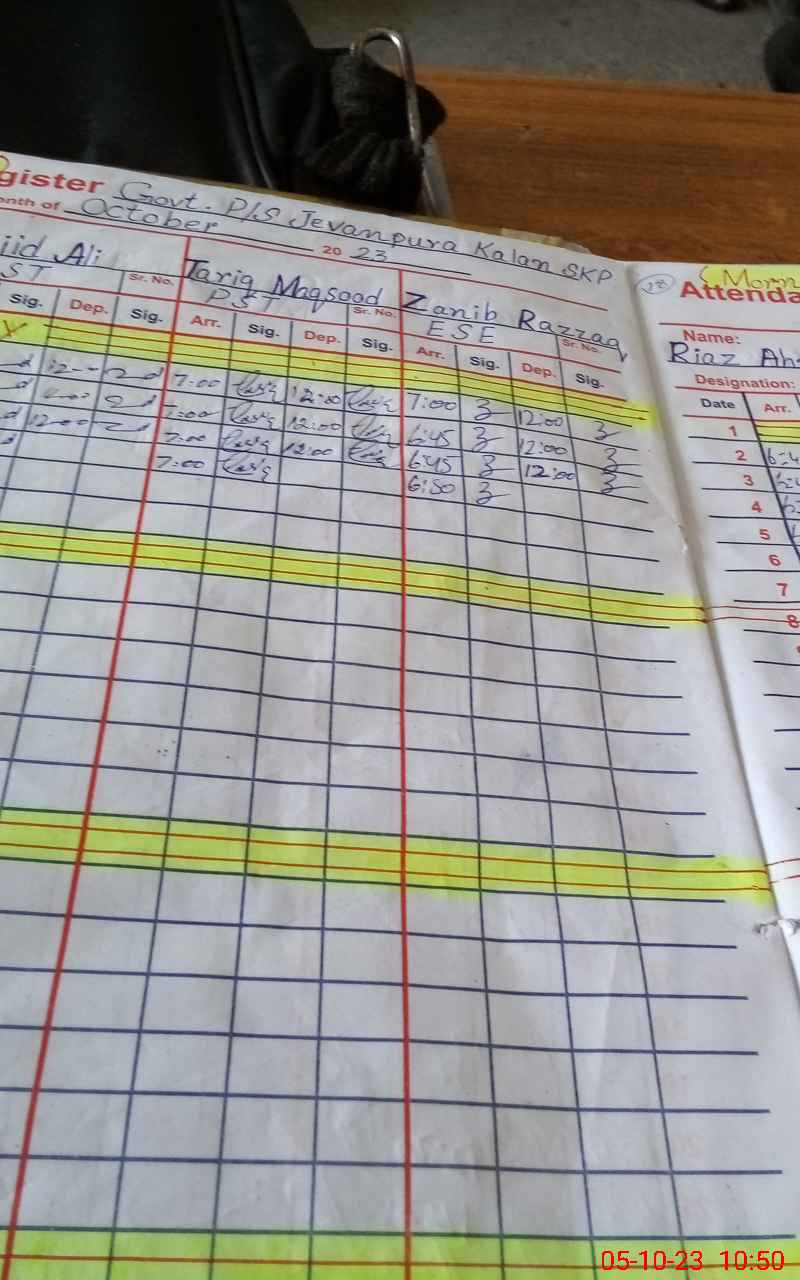 gister Govt. P/S Jevanpura Kalan SKP
onth of October 20 23
jid Ali Tariq Maqsood Zanib Razzaq
ST Sr. No. PST Sr. No. ESE Sr. No.
Sig. Dep. Sig. Arr. Sig. Dep. Sig. Arr. Sig. Dep. Sig.
7:00 12:00 7:00 12:00
7:00 12:00 6:45 12:00
12:00 7:00 12:00 6:45 12:00
7:00 6:50
28 (Morn
Attenda
Name:
Riaz Ah
Designation:
Date Arr.
1
2
3
4
5
6
7
8
05-10-23 10:50